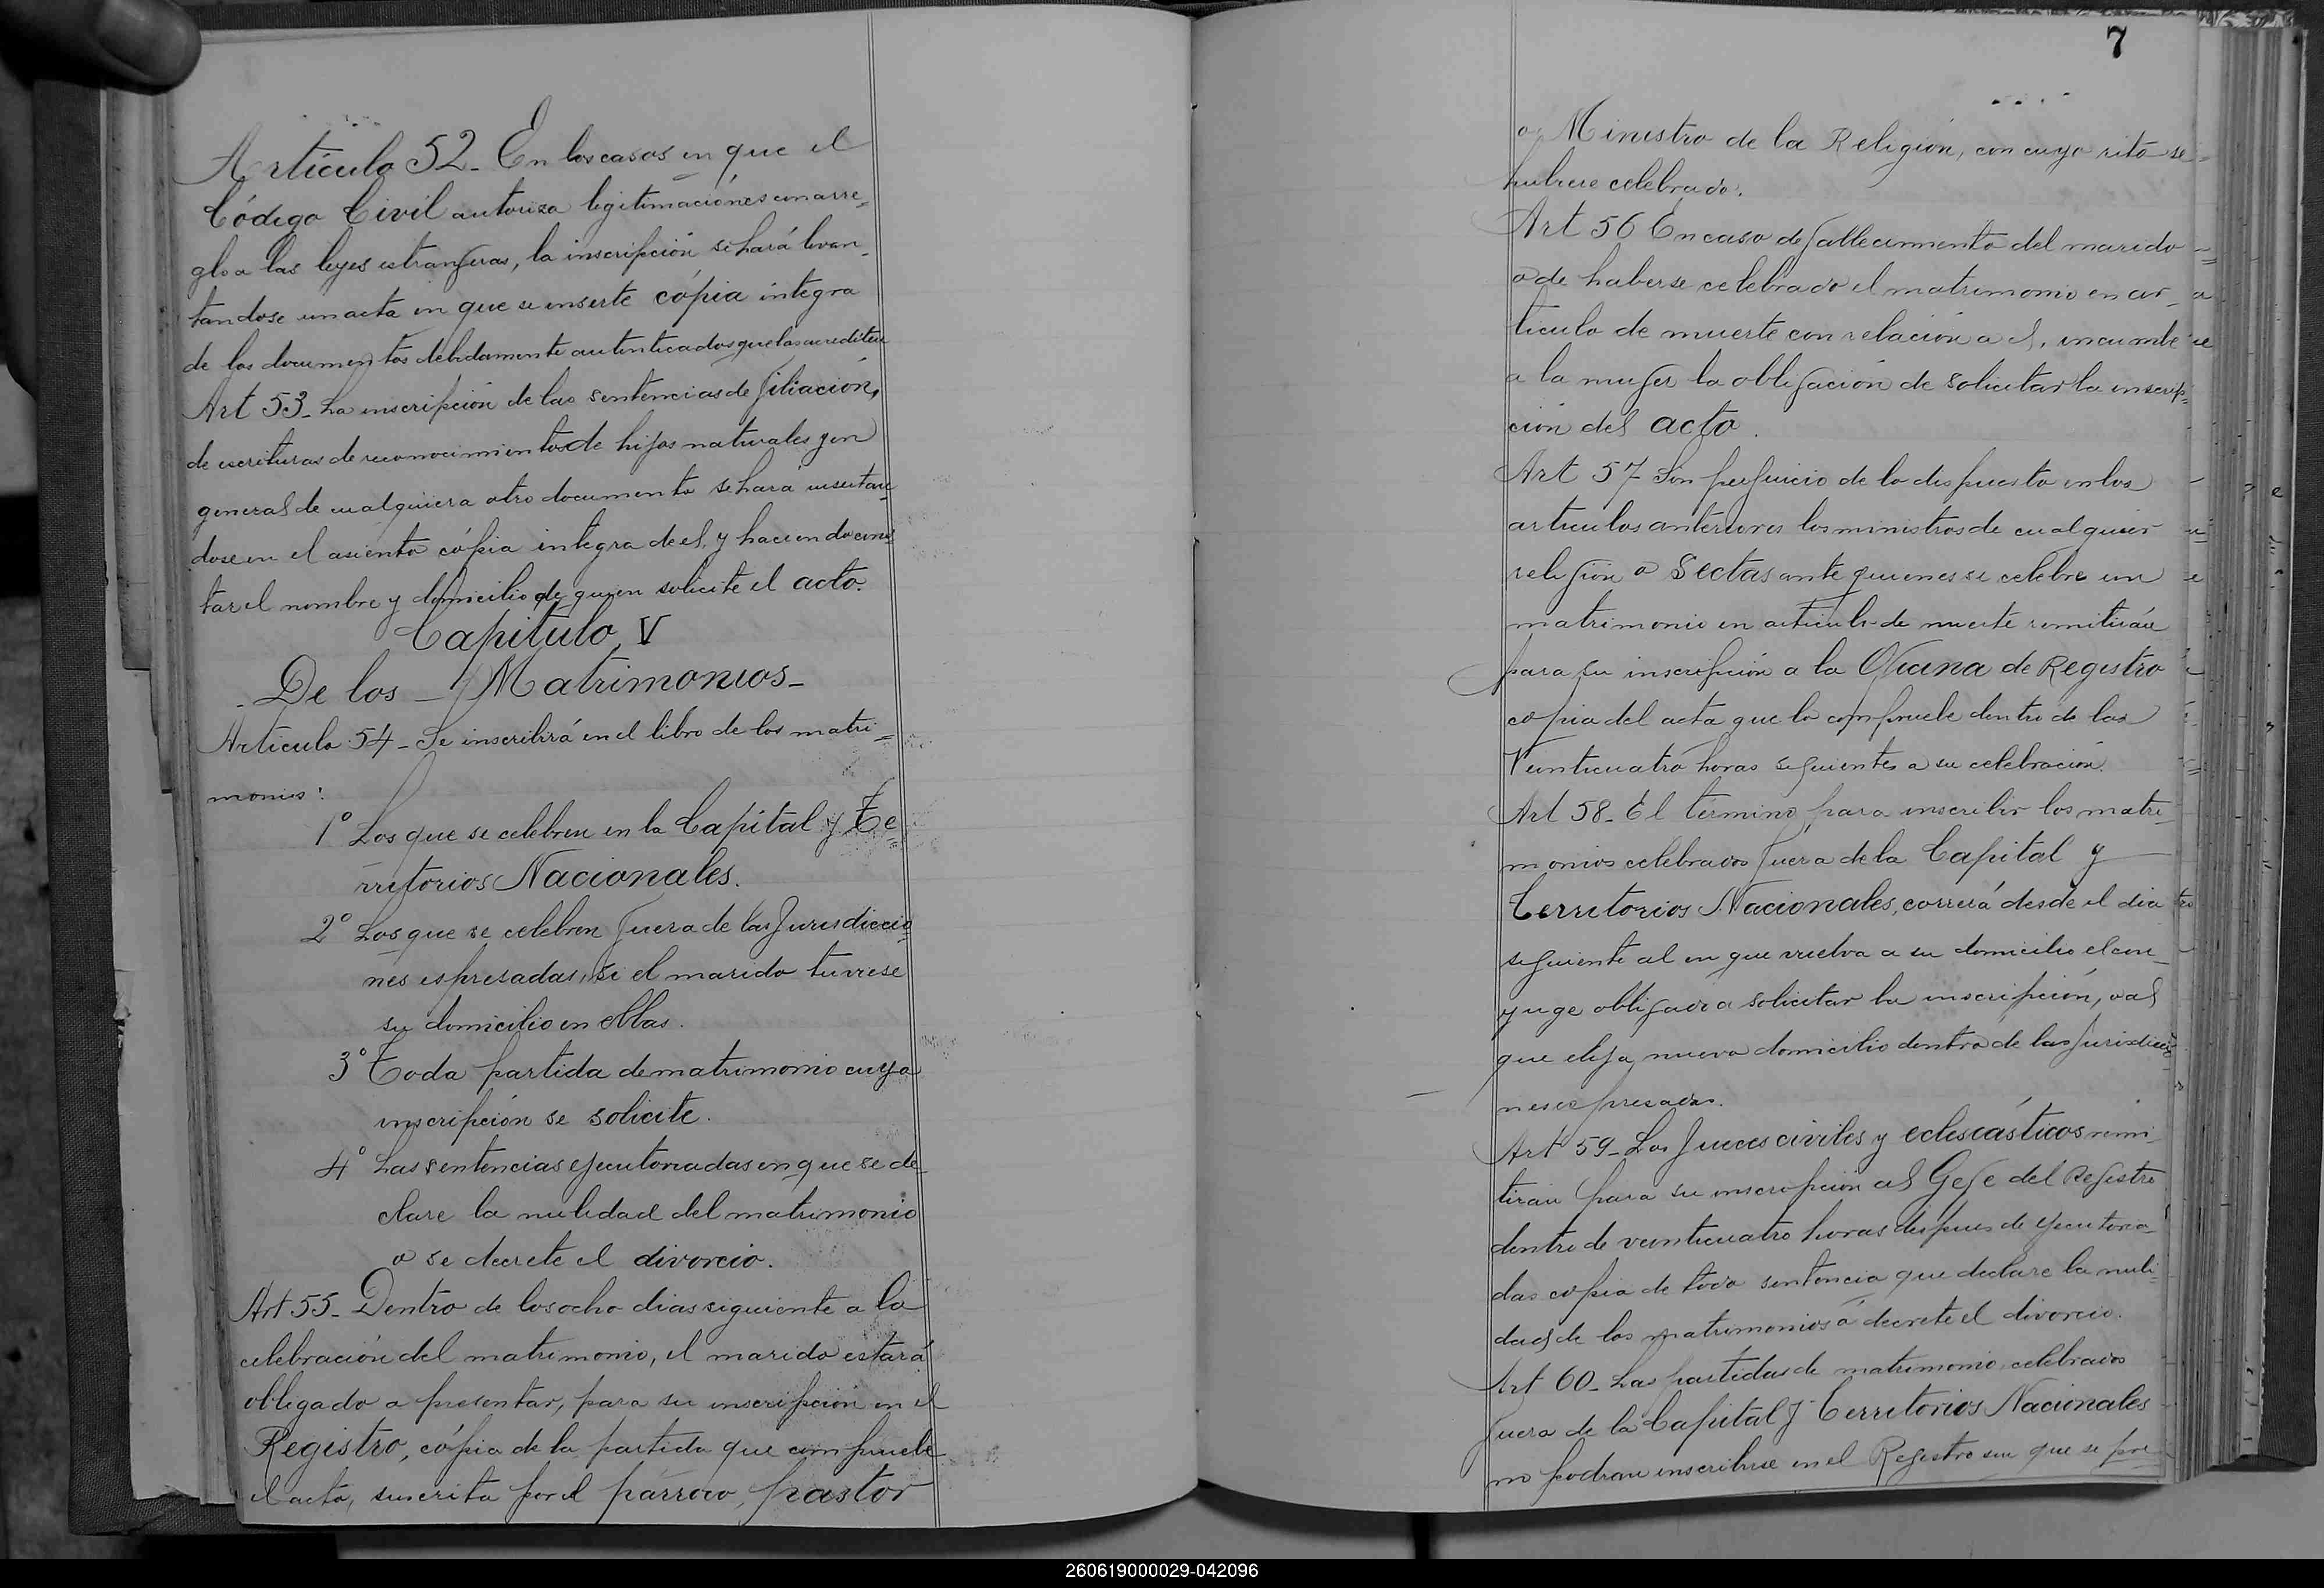 Artículo 52_ En los casos en que el
Código Civil autoriza legitimaciónes con arre=
glo a las leyes estranjeras, la inscripción se hará levan_
tandose un acta en que se inserte cópia integra
de los documentos debidamente autenticados que las acrediten
Art 53_ La inscripción de las sentencias de filiación,
de escrituras de reconocimientos de hijos naturales y en
general de cualquiera otro documento se hará insertan=
dose en el asiento cópia integra de el, y haciendo cons
tar el nombre y domicilio de quien solicite el acto.
Capitulo V
De los _ Matrimonios_
Articulo 54_ Se inscribirá en el libro de los matri=
monios:
1º Los que se celebren en la Capital y Te=
rritorios Nacionales.
2º Los que se celebren fuera de las Jurisdiccio=
nes espresadas, si el marido tuviese
su domicilio en ellas.
3º Toda partida de matrimonio cuya
inscripción se solicite.
4º Las sentencias ejecutoriadas en que se de_
clare la nulidad del matrimonio
o se decrete el divorcio.
Art 55_ Dentro de los ocho dias siguiente a la
celebración del matrimonio, el marido estará
obligado a presentar, para su inscripción en el
Registro, cópia de la partida que compruebe
el acto, suscrita por el párroco, pastor
7
o Ministro de la Religión, con cuyo rito se
hubiere celebrado.
Art 56 En caso de fallecimiento del marido
o de haberse celebrado el matrimonio en ar_
ticulo de muerte con relación a el, incumbe
a la mujer la obligación de solicitar la inscrip=
ción del acto.
Art 57 Sin perjuicio de lo dispuesto en los
articulos anteriores los ministros de cualquier
religión o Sectas ante quienes se celebre un
matrimonio en articulo de muerte remitirán
para su inscripción a la Oficina de Registro
copia del acta que lo compruebe dentro de las
Veinticuatro horas siguientes a su celebración.
Art 58_ El término para inscribir los matri_
monios celebrados fuera de la Capital y
Territorios Nacionales, correrá desde el dia
siguiente al en que vuelva a su domicilio el con_
yuge obligado a solicitar la inscripción, o al
que elija nuevo domicilio dentro de las Jurisdiccio
nes espresadas.
Art 59_ Los Jueces civiles y eclesiásticos remi_
tiran para su inscripción al Gefe del Registro
dentro de veinticuatro horas despues de ejecutoria_
das copia de toda sentencia que declare la nuli=
dad de los matrimonios ó decrete el divorcio.
Art 60_ Las partidas de matrimonio celebrados
fuera de la Capital y Territorios Nacionales
no podran inscribirse en el Registro sin que se pre
260619000029-042096